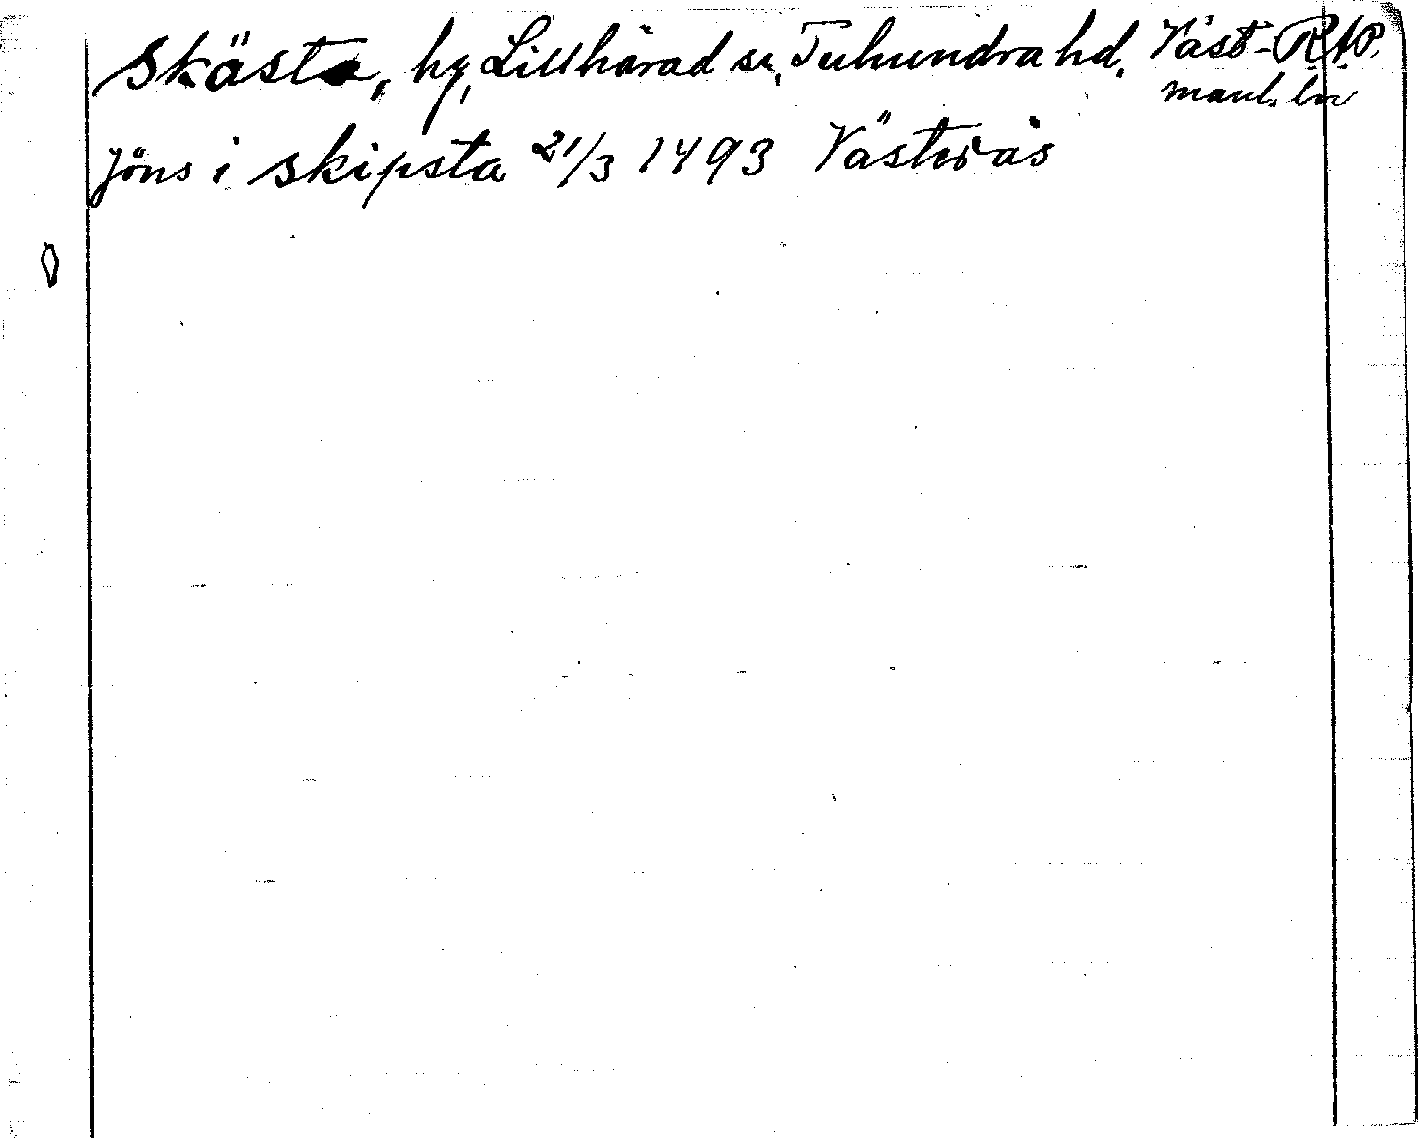 Skästa, by, Lillhärad sn, Tuhundra hd, Väst- RAP.
manl. ln
Jöns i skipsta 21/3 1493 Västerås